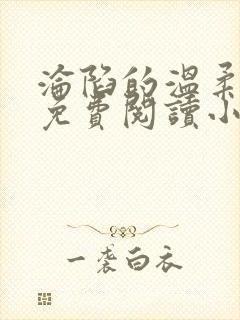 淪陷的溫柔
免費閱讀小
一袭白衣